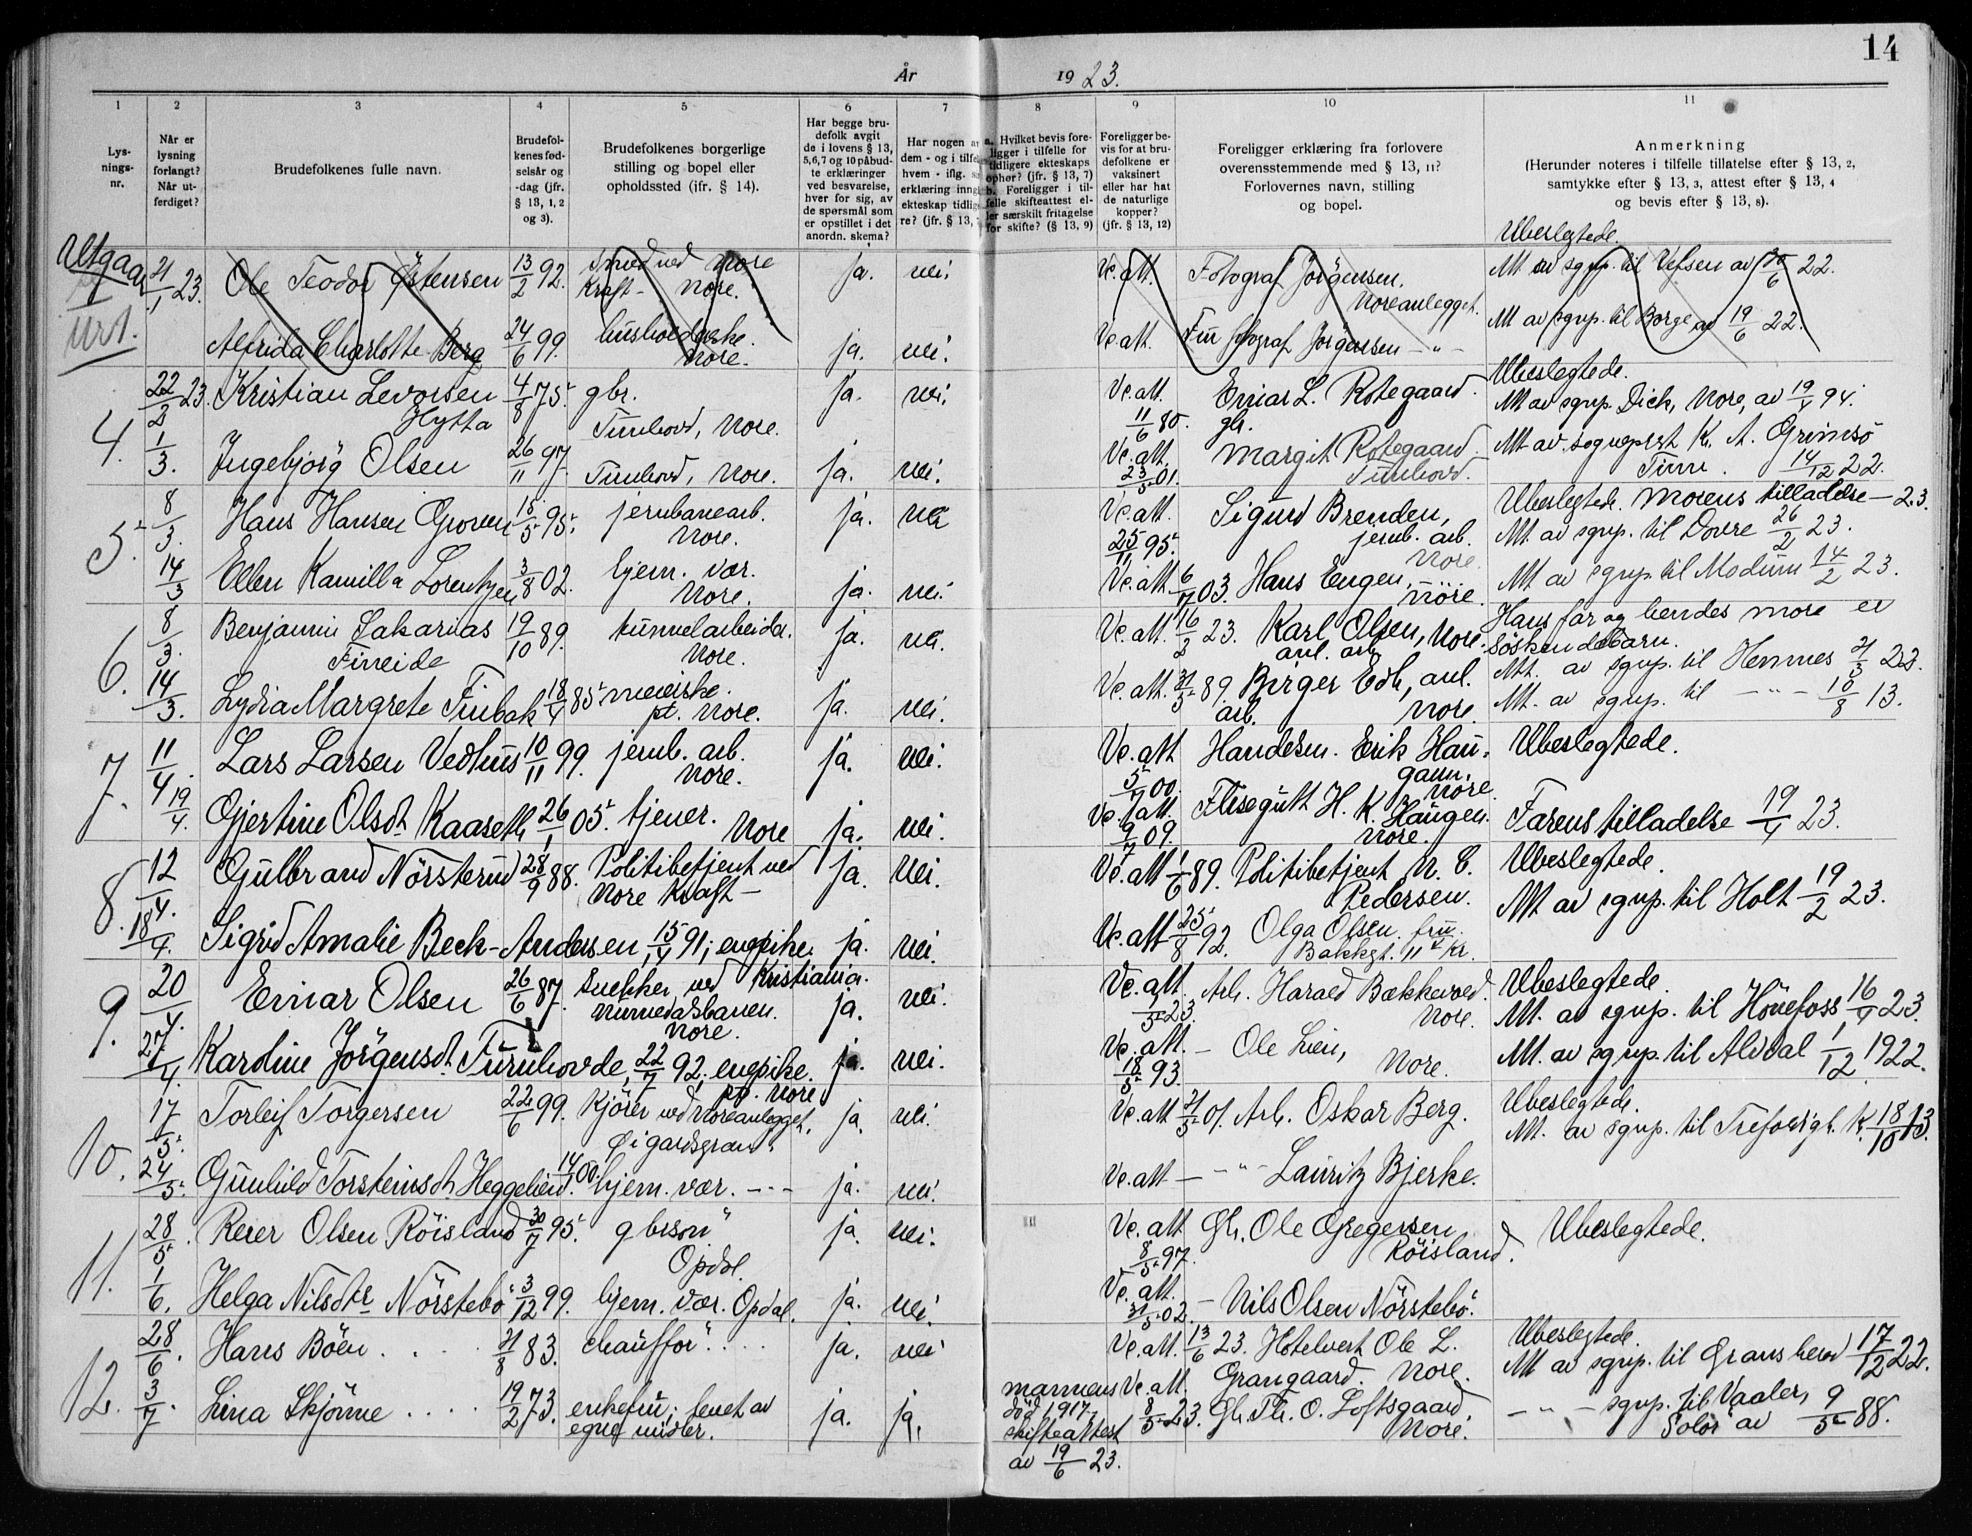 14
År 1923.
1 2 3 4 5 6 7 8 9 10 11
Lys-
nings-
nr.
Når er
lysning
forlangt?
Når ut-
ferdiget?
Brudefolkenes fulle navn.
Brudefol-
kenes fød-
selsår og
-dag (jfr.
§ 13, 1, 2
og 3).
Brudefolkenes borgerlige
stilling og bopel eller
opholdssted (jfr. § 14).
Har begge bru-
defolk avgit
de i lovens § 13,
5,6,7 og 10 påbud-
te erklæringer
ved besvarelse,
hver for sig, av
de spørsmål som
er opstillet i det
anordn. skema?
Har nogen a
dem - og i tilfel
hvem - iflg. s
erklæring inng
ekteskap tidlig
re? (jfr. § 13,
a. Hvilket bevis fore-
ligger i tilfelle for
tidligere ekteskaps
ophør? (jfr. § 13, 7)
b. Foreligger i til-
felle skifteattest el-
ler særskilt fritagelse
for skifte? (§ 13, 9)
Foreligger be-
vis for at bru-
defolkene er
vaksinert
eller har hat
de naturlige
kopper?
(jfr. § 13, 12)
Foreligger erklæring fra forlovere
overensstemmende med § 13, 11?
Forlovernes navn, stilling
og bopel.
Anmerkning
(Herunder noteres i tilfelle tillatelse efter § 13, 2,
samtykke efter § 13, 3, attest efter § 13, 4
og bevis efter § 13, 8).
Utgaar
21/1 23. Ole Teodor Østensen 13/2 92. Smed ved Nore Kraft- Nore. ja. nei. Vc. att. Fotograf Jörgensen, Noreanlegget. Ubeslegtede. Att. av sgnp. til Vefsen av 20/6 22.
Alfrida Charlotte Berg 24/6 99. husholderske. Nore. ja. nei. Vc. att. Fru fotograf Jörgensen - " - Att av sgnp. til Borge av 19/6 22.
4. 22/2 23. Kristian Levorsen Hytta 4/8 75. gbr. Tunhovd, Nore. ja. nei. Vc. att. 11/6 80. Einar L. Rotegaard. gbr. Ubeslegtede. Att av sgnp. Dick, Nore, av 19/4 94.
1/3. Ingebjörg Olsen 26/11 97. Tunhovd, Nore. ja. nei. Vc. att. 23/5 01. Margit Rotegaard. Tunhovd. Att av sogneprst K. A. Grimsö Tinn. 14/12 22.
5. 8/3. Hans Hansen Groven 15/5 95. jernbanearb. Nore. ja. nei Vc. att. 25/11 95. Sigurd Brenden, jernb. arb. Nore. Ubeslegtede. Morens tilladelse - 23. Att. av sgnp. til Dovre 26/2 23.
14/3 Ellen Kamilla Lorentzen 3/8 02. hjem. vær. Nore. ja. nei. Vc. att. 6/7 03. Hans Engen, Nore. Att. av sgnp til Modum 14/2 23.
6. 8/3. Benjamin Sakarias Fineide 19/10 89. tunnelarbeider. Nore. ja. nei. Vc. att. 16/2 23. Karl Olsen, Nore. anl. arb. Hans far og hendes more er söskendebarn. Att. av sgnp. til Hemnes 21/3 23.
14/3. Lydia Margrete Finbak 18/4 85 meierske. pt. Nore. ja. nei. Vc. att. 31/5 89. Birger Edh, anl. arb. Nore. Att. av sgnp. til - " - 10/8 13.
7. 11/4. Lars Larsen Vedhus 10/11 99. jernb. arb. Nore. ja. nei. Vc. att 5/7 00. Handelsm. Erik Haugann, Nore. Ubeslegtede.
19/4. Gjertine Olsdt Kaaseth 26/1 05. tjener. Nore ja. nei. Vc. att. 9/7 09. Flisegutt H. K. Haugen. Nore. Farens tilladelse 19/4 23.
8. 12/4. Gulbrand Nörsterud 28/9 88. Politibetjent ved Nore Kraft- ja. nei. Vc. att 1/6 89. Politibetjent N. C. Pedersen. Ubeslegtede.
18/4. Sigrid Amalie Beck-Andersen, 15/4 91, engpike. Kristiania. ja. nei. Vc. att 25/8 92. Olga Olsen, fru. Bakkegt. 11 Kr. Att av sgnp. til Holt 19/2 23.
9. 20/4. Einar Olsen 26/6 87. Snekker ved Numedalsbanen. Nore. ja. nei. Vc. att. 1/5 23. Arb. Harald Bækkevold. Nore. Ubeslegtede. Att. av sgnp. til Hönefoss 16/4 23.
27/4. Karoline Jörgensdt. Tunhovde, 22/7 92. engpike. pt. Nore ja. nei. Vc. att. 18/5 93. - Ole Lien, Nore. Att. av sgnp. til Alvdal 1/12 1922.
10. 17/5. Torleif Torgersen 22/6 99. Kjörer ved Noreanlegget. Øigardsgrand ja. nei. Vc. att 21/5 01. Arb. Oskar Berg. Ubeslegtede. Att. av sgnp. til Trefoldigh. K. 18/10 13.
24/5. Gunhild Torsteinsdt. Heggelien 14/ 00. hjem. vær. - " - ja. nei. Vc. att - - " - Lauritz Bjerke.
11. 28/5. Reier Olsen Röisland 30/7 95. gbrson Opdal. ja. nei. Vc. att 8/5 97. Gbr. Ole Gregersen Röisland. Ubeslegtede.
1/6. Helga Nilsdtr Nörstebö 3/12 99. hjem. vær. Opdal. ja. nei. Vc. att. 31/5 02. - Nils Olsen Nörstebö.
12. 28/6. Hans Böen . . . 21/8 83. chauffør . . . ja. nei Vc. att. 13/6 23. Hotelvert Ole L. Grangaard. Nore. Ubeslegtede. Att av sgnp. til Gransherad 17/12 22.
3/7. Lina Skjönne . . . . 19/2 73. enkefru; levet av egne midler. ja. ja. mannens död 1917. skifteattest av 19/6 23. Vc. att. 8/5 23. Gbr. Th. O. Loftsgaard, Nore. - " - sgnp. til Vaaler, Solör av 9/5 88.